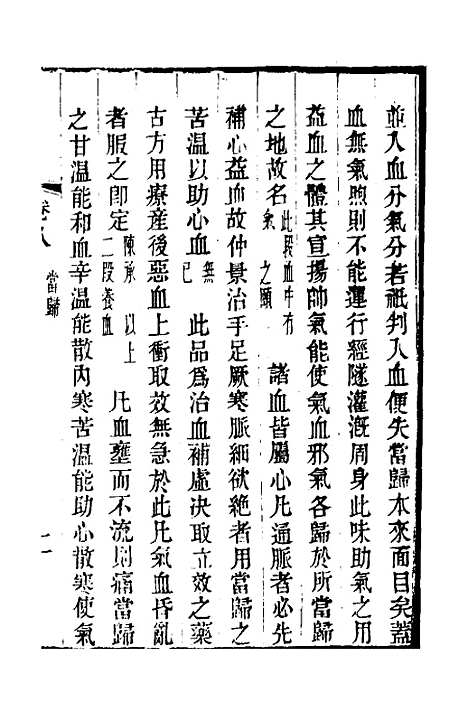 並入血分氣分若祇判入血便失當歸本來面目矣蓋
血無氣煦則不能運行經隧灌漑周身此味助氣之用
益血之體其宣揚帥氣能使氣血邪氣各歸於所當歸
之地故名此段血中有氣之頤 諸血皆屬心凡通脈者必先
補心益血故仲景治手足厥寒脈細欲絶者用當歸之
苦温以助心血無己 此品爲治血補虛决取立效之藥
古方用療産後惡血上衝取效無急於此凡氣血昏亂
者服之卽定陳承 以上二段養血 凡血壅而不流則痛當歸
之甘温能和血辛温能散內寒苦温能助心散寒使氣
卷八 當歸 十一